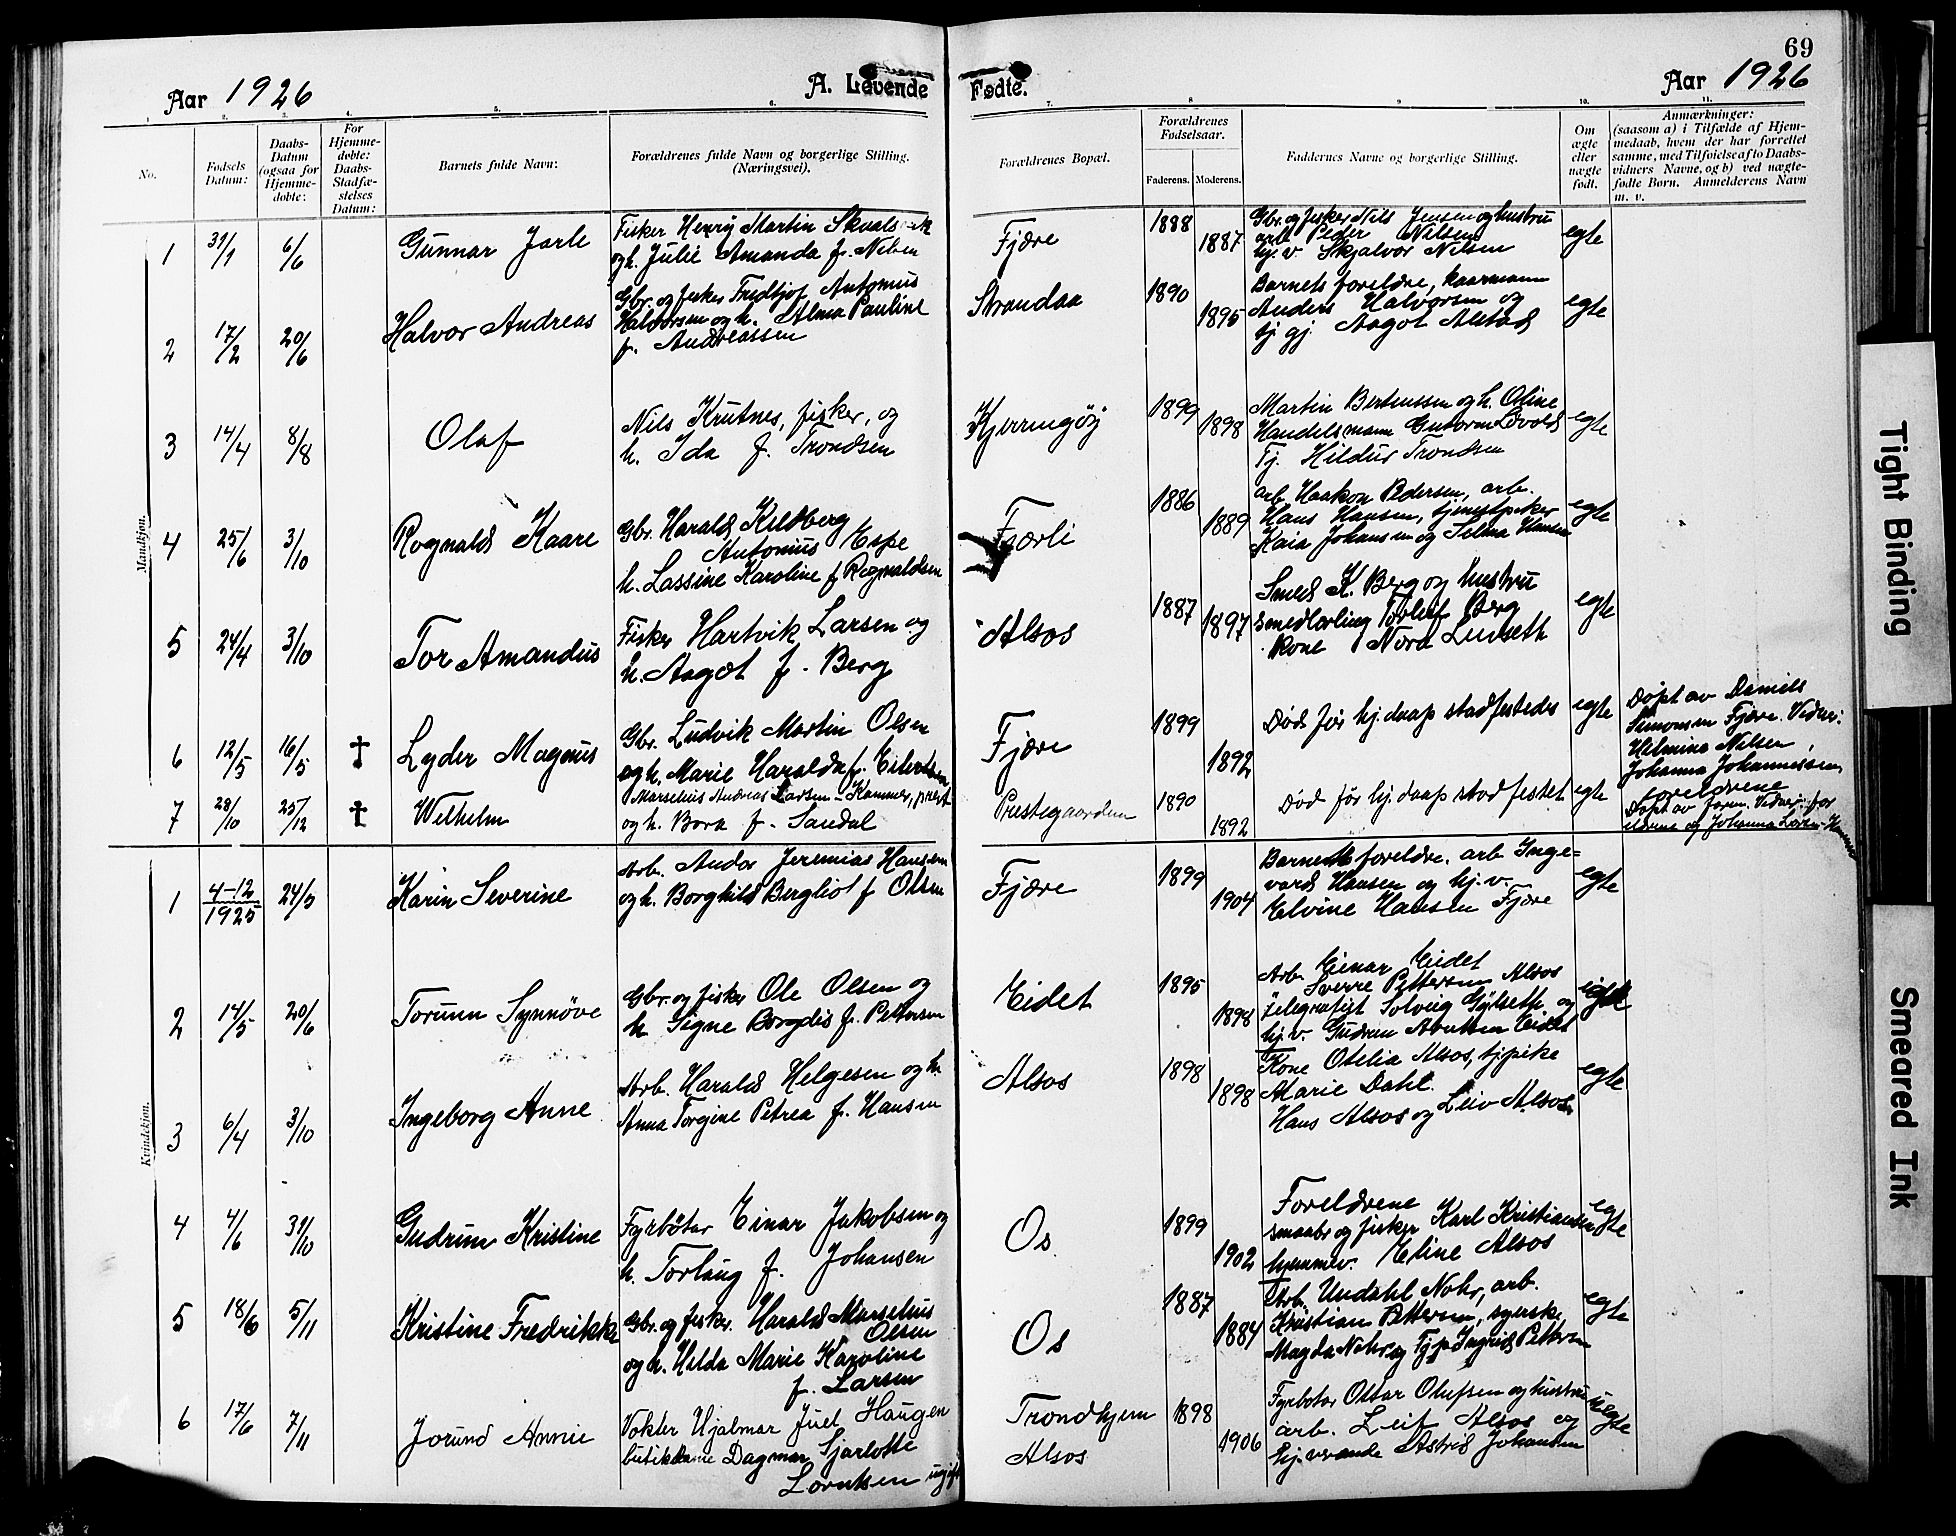 69
Aar 1926
A. Levende
Fødte.
Aar 1926
1. 2. 3. 4. 5. 6. 7. 8 9 10. 11.
No.
Fødsels Datum:
Daabs-Datum (ogsaa for Hjemme-døbte:
For Hjemme-døbte: Daabs-Stadfæ-stelses Datum:
Barnets fulde Navn:
Forældrenes fulde Navn og borgerlige Stilling. (Næringsvei).
Forældrenes Bopæl.
Forældrenes Fødselsaar.
Faderens. Moderens.
Faddernes Navne og borgerlige Stilling.
Om ægte eller nægte født.
Anmærkninger:
(saasom a) i Tilfælde af Hjem-
medaab, hvem der har forrettet
samme, med Tilføielse af to Daabs-
vidners Navne, og b) ved nægte-
fødte Børn. Anmelderens Navn
m. v.
Mandkjøn.
1 31/1 6/6 Gunnar Jarle
Fisker Henry Martin
og h. Julie Amanda f. Nilsen
Fjære 1888 1887
Gbr. og fisker Nils Jensen og hustru
arb. Peder Nilsen
hj. v. Skjalvor Nilsen
egte
2 17/2 20/6 Halvor Andreas
Gbr. og fisker Fridtjof Antonius
Halvorsen og h. Alma Pauline
f. Andreassen
Strandaa 1890 1895
Barnets foreldre, kaarmann
Anders Halvorsen og
tj. gj. Aagot Alstad
egte
3 14/4 8/8 Olaf
Nils Krutnes, fisker, og
h. Ida f. Trondsen
Kjerringøy 1899 1898
Martin Berteussen og h. Oline
Handelsmann Guttorm Løvold
Tj. Hildur Trondsen
egte
4 25/6 3/10 Rognald Kaare
Gbr. Harald Kildberg
Antonius Espe
h. Lassine Karoline f. Rognaldsen
Fjærli 1886 1889
arb. Haakon Pedersen, arb.
Hans Hansen, tjenestpiker
Kaia Johansen og Selma Hansen
egte
5 24/4 3/10 Tor Amandus
Fisker Hartvik Larsen og
h. Aagot f. Berg
Alsos 1887 1897
Smed K. Berg og hustru
smedlærling Torleif Berg
kone Nora
egte
6 12/5 16/5 † Lyder Magnus
Gbr. Ludvik Martin Olsen
og h. Marie Haralda f. Eilertsen
Fjære 1899 1892
Død før hj. daap stadfestedes
egte
Døpt av Daniels
Simonsen Fjære. Vidner:
Hilmina Nilsen,
Johanna Johannessen,
foreldrene
7 28/10 25/12 † Wilhelm
Marselius Andreas Larsen - Kammer, prest
og h. Bora f. Sandal
Prestegaarden 1890 1892
Død før hj. daap stadfestet
egte
Døpt av faren. Vidner: for
eldrene og Johanna Larsen-
Kvindekjøn.
1 4-12 1925 24/5 Karin Severine
Arb. Andor Jeremias Hansen
og h. Borghild Bergliot f. Olsen
Fjære 1899 1904
Barnets foreldre, arb Inge-
vard Hansen og hj. v.
Elvine Hansen Fjære
egte
2 14/5 20/6 Torunn Synnøve
Gbr. og fisker Ole Olsen og
h. Signe Bergdis f. Pettersen
Eidet 1895 1898
Arb. Einar Eidet
Sverre Pettersen Alsos
telegrafist Solveig Gylseth og
hj. v. Gudrun Eidet
egte
3 6/4 3/10 Ingeborg Anne
Arb. Harald Helgesen og h.
Anna Torgine Petrea f. Hansen
Alsos 1898 1898
Kone Otelia Alsos, tjpike
Marie Dahl.
Hans Alsos og Leiv Alsos
egte
4 4/6 31/10 Gudrun Kristine
Fyrbøter Einar Jakobsen og
h. Torlaug f. Johansen
Os 1899 1902
Foreldrene
smaabr og fisker Karl Kristiansen
hjemmev. Eline Alsos
egte
5 18/6 5/11 Kristine Fredrikke
Gbr. og fisker. Harald Marselius
Olsen
og h. Hilda Marie Karoline
f. Larsen
Os 1887 1884
Arb. Undahl Nohr, arb.
Kristian Pettersen, syerske
Magda Nohr og Tjp Ingrid Pettersen
egte
6 17/6 7/11 Jorund Annie
Vokter Hjalmar Juel Haugen
butikdame Dagmar Sjarlotte
Lorntsen ugift
Trondhjem
Alsos
1898 1906
Fyrbøter Ottar Olufsen og hustru
arb. Leif Alsos og
hj. værende Astrid Johansen
uegte
Tight Binding
Smeared Ink